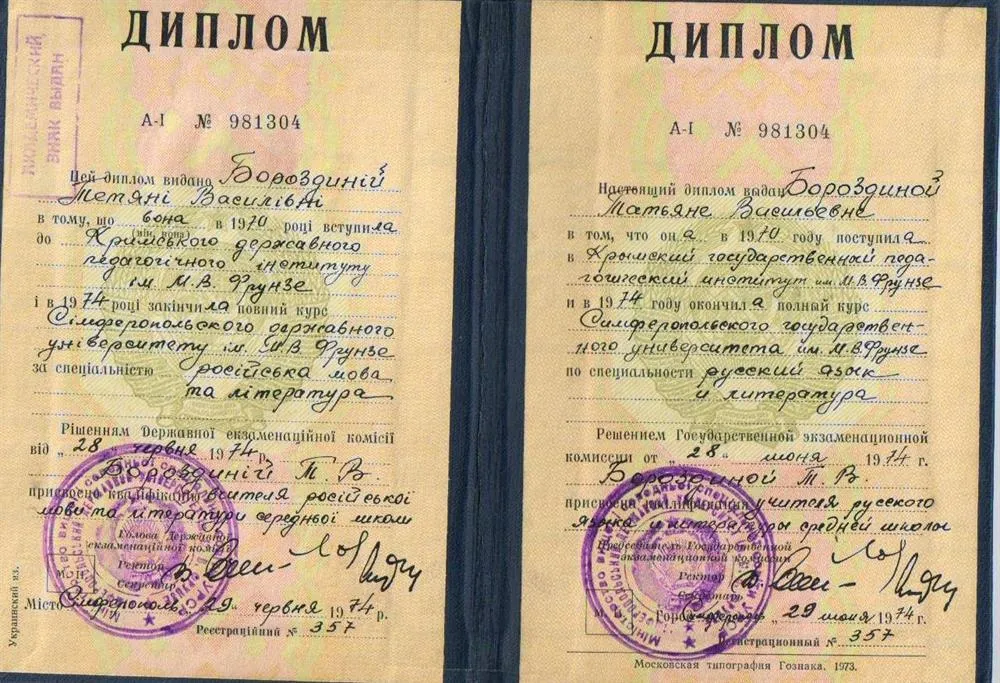 АКАДЕМИЧЕСКИЙ
ЗНАК ВЫДАН
ДИПЛОМ
А-I № 981304
Цей диплом видано Бороздиній
Тетяні Василівні
в тому, що вона в 1970 році вступила
(він, вона)
до Кримського державного
педагогічного інституту
ім. М.В. Фрунзе
і в 1974 році закінчила повний курс
Сімферопольського державного
університету ім. М.В. Фрунзе
за спеціальністю російська мова
та література
Рішенням Державної екзаменаційної комісії
від „28" червня 1974 р.
Бороздиній Т. В.
присвоєно кваліфікацію учителя російської
мови та літератури середньої школи
Голова Державної
екзаменаційної комісії
Ректор
Секретар
Місто Сімферополь „29" червня 1974 р.
Реєстраційний № 357
Украинский яз.
ДИПЛОМ
А-I № 981304
Настоящий диплом выдан Бороздиной
Татьяне Васильевне
в том, что она в 1970 году поступила
в Крымский государственный педа-
гогический институт им. М.В. Фрунзе
и в 1974 году окончила полный курс
Симферопольского государствен-
ного университета им. М.В. Фрунзе
по специальности русский язык
и литература
Решением Государственной экзаменационной
комиссии от „28" июня 1974 г.
Бороздиной Т. В.
присвоена квалификация учителя русского
языка и литературы средней школы
Председатель Государственной
экзаменационной комиссии
Ректор
Секретарь
Город Симферополь „29" июня 1974 г.
Регистрационный № 357
Московская типография Гознака. 1973.